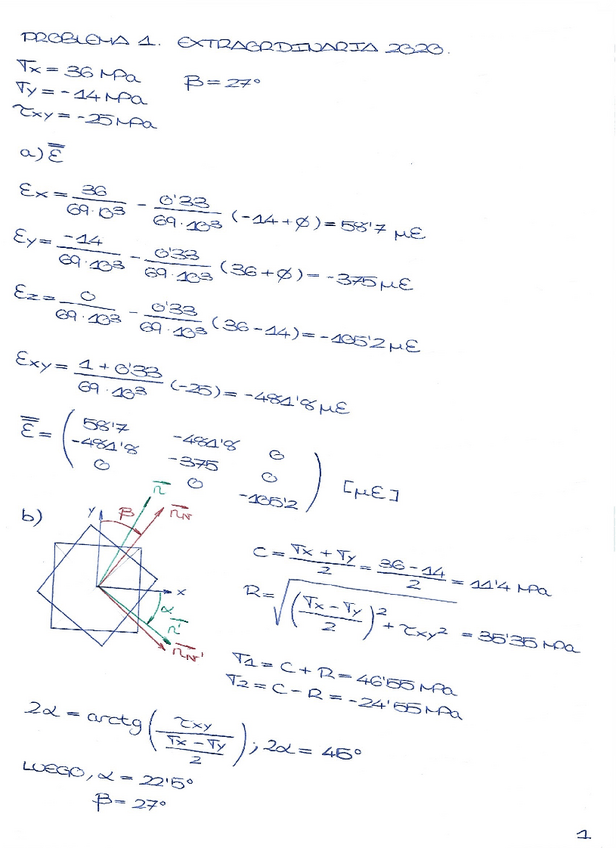 PROBLEMA 1. EXTRAORDINARIA 2020.
σx = 36 MPa β = 27°
σy = -14 MPa
τxy = -25 MPa
a) ε̿
εx = 36/69·10³ - 0'33/69·10³ (-14+∅) = 58'7 με
εy = -14/69·10³ - 0'33/69·10³ (36+∅) = -375 με
εz = 0/69·10³ - 0'33/69·10³ (36-14) = -105'2 με
εxy = 1+0'33/69·10³ (-25) = -481'8 με
ε̿ = ( 58'7 -481'8 0
-481'8 -375 0
0 0 -105'2 ) [με]
b) y β n nN
x α n' nN'
C = σx + σy/2 = 36-14/2 = 11'4 MPa
R = √((σx - σy/2)² + τxy²) = 35'35 MPa
σ1 = C + R = 46'55 MPa
σ2 = C - R = -24'55 MPa
2α = arctg (τxy/(σx - σy/2)); 2α = 45°
LUEGO, α = 22'5°
β = 27°
1